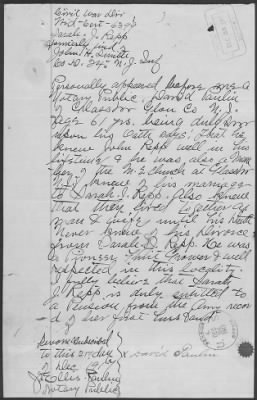 Civil War Div
Wid-Cert-
Sarah J. Repp
formerly wid of
John H.
Co. D. 24th N.J. Inf
Personally appeared before me a
Notary Public, David Paulin
of Glassboro Glou Co N.J.
age 61 yrs. being duly sworn
upon his oath says: that he
knew John Repp well in his
lifetime & he was also a mem
ber of the M.E. Church at Glassboro
N.J. knew of his marriage
to Sarah J. Repp. Also knew
that they lived together as
man & wife until his death
Never knew of his divorce
from Sarah J. Repp. He was
a Pioneer Fruit Grower & well
respected in this locality.
I fully believe that Sarah
J. Repp is duly entitled to
a Pension from the
of her first husband
Sworn & subscribed
to this 21st day
of Dec
David Paulin
Ellis Paulin
Notary Public